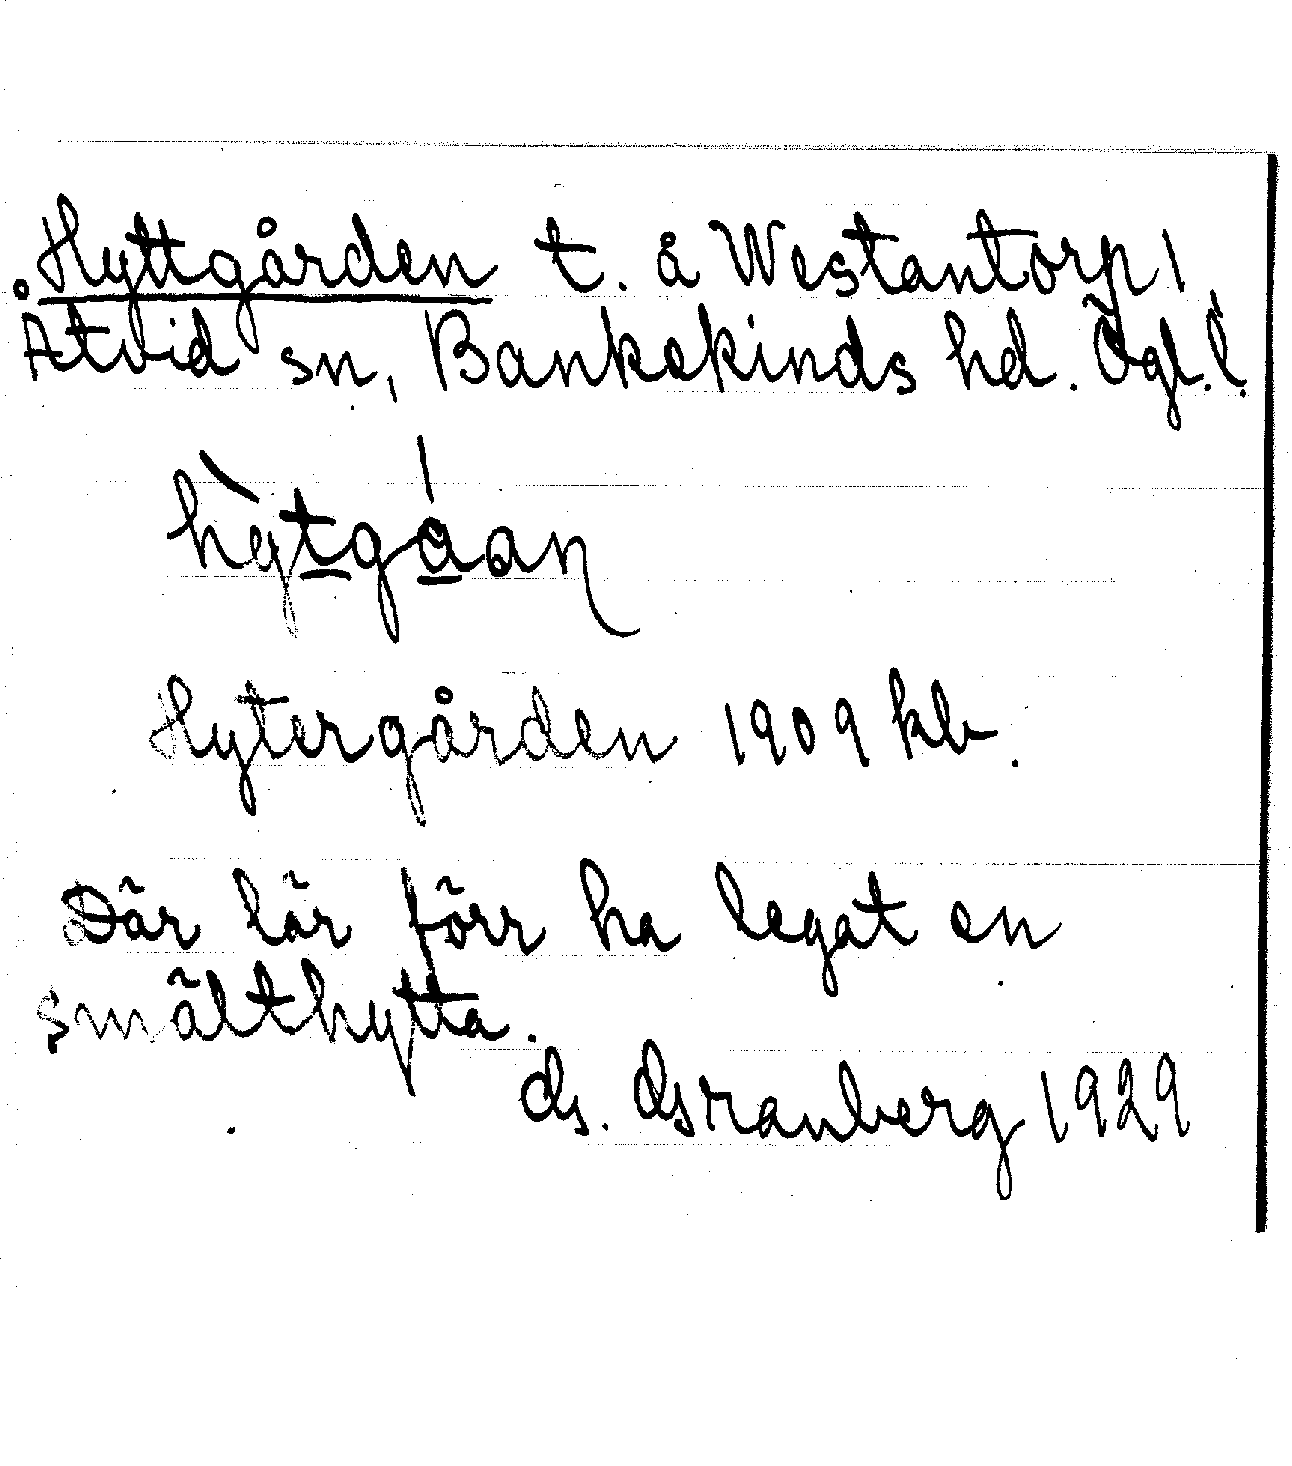 Hyttgården t. å Westantorp,
Åtvid sn, Bankekinds hd. Ögl. l.
hỳtgáan
Hytergården 1909 kb.
Där lär förr ha legat en
smälthytta.
G. Granberg 1929